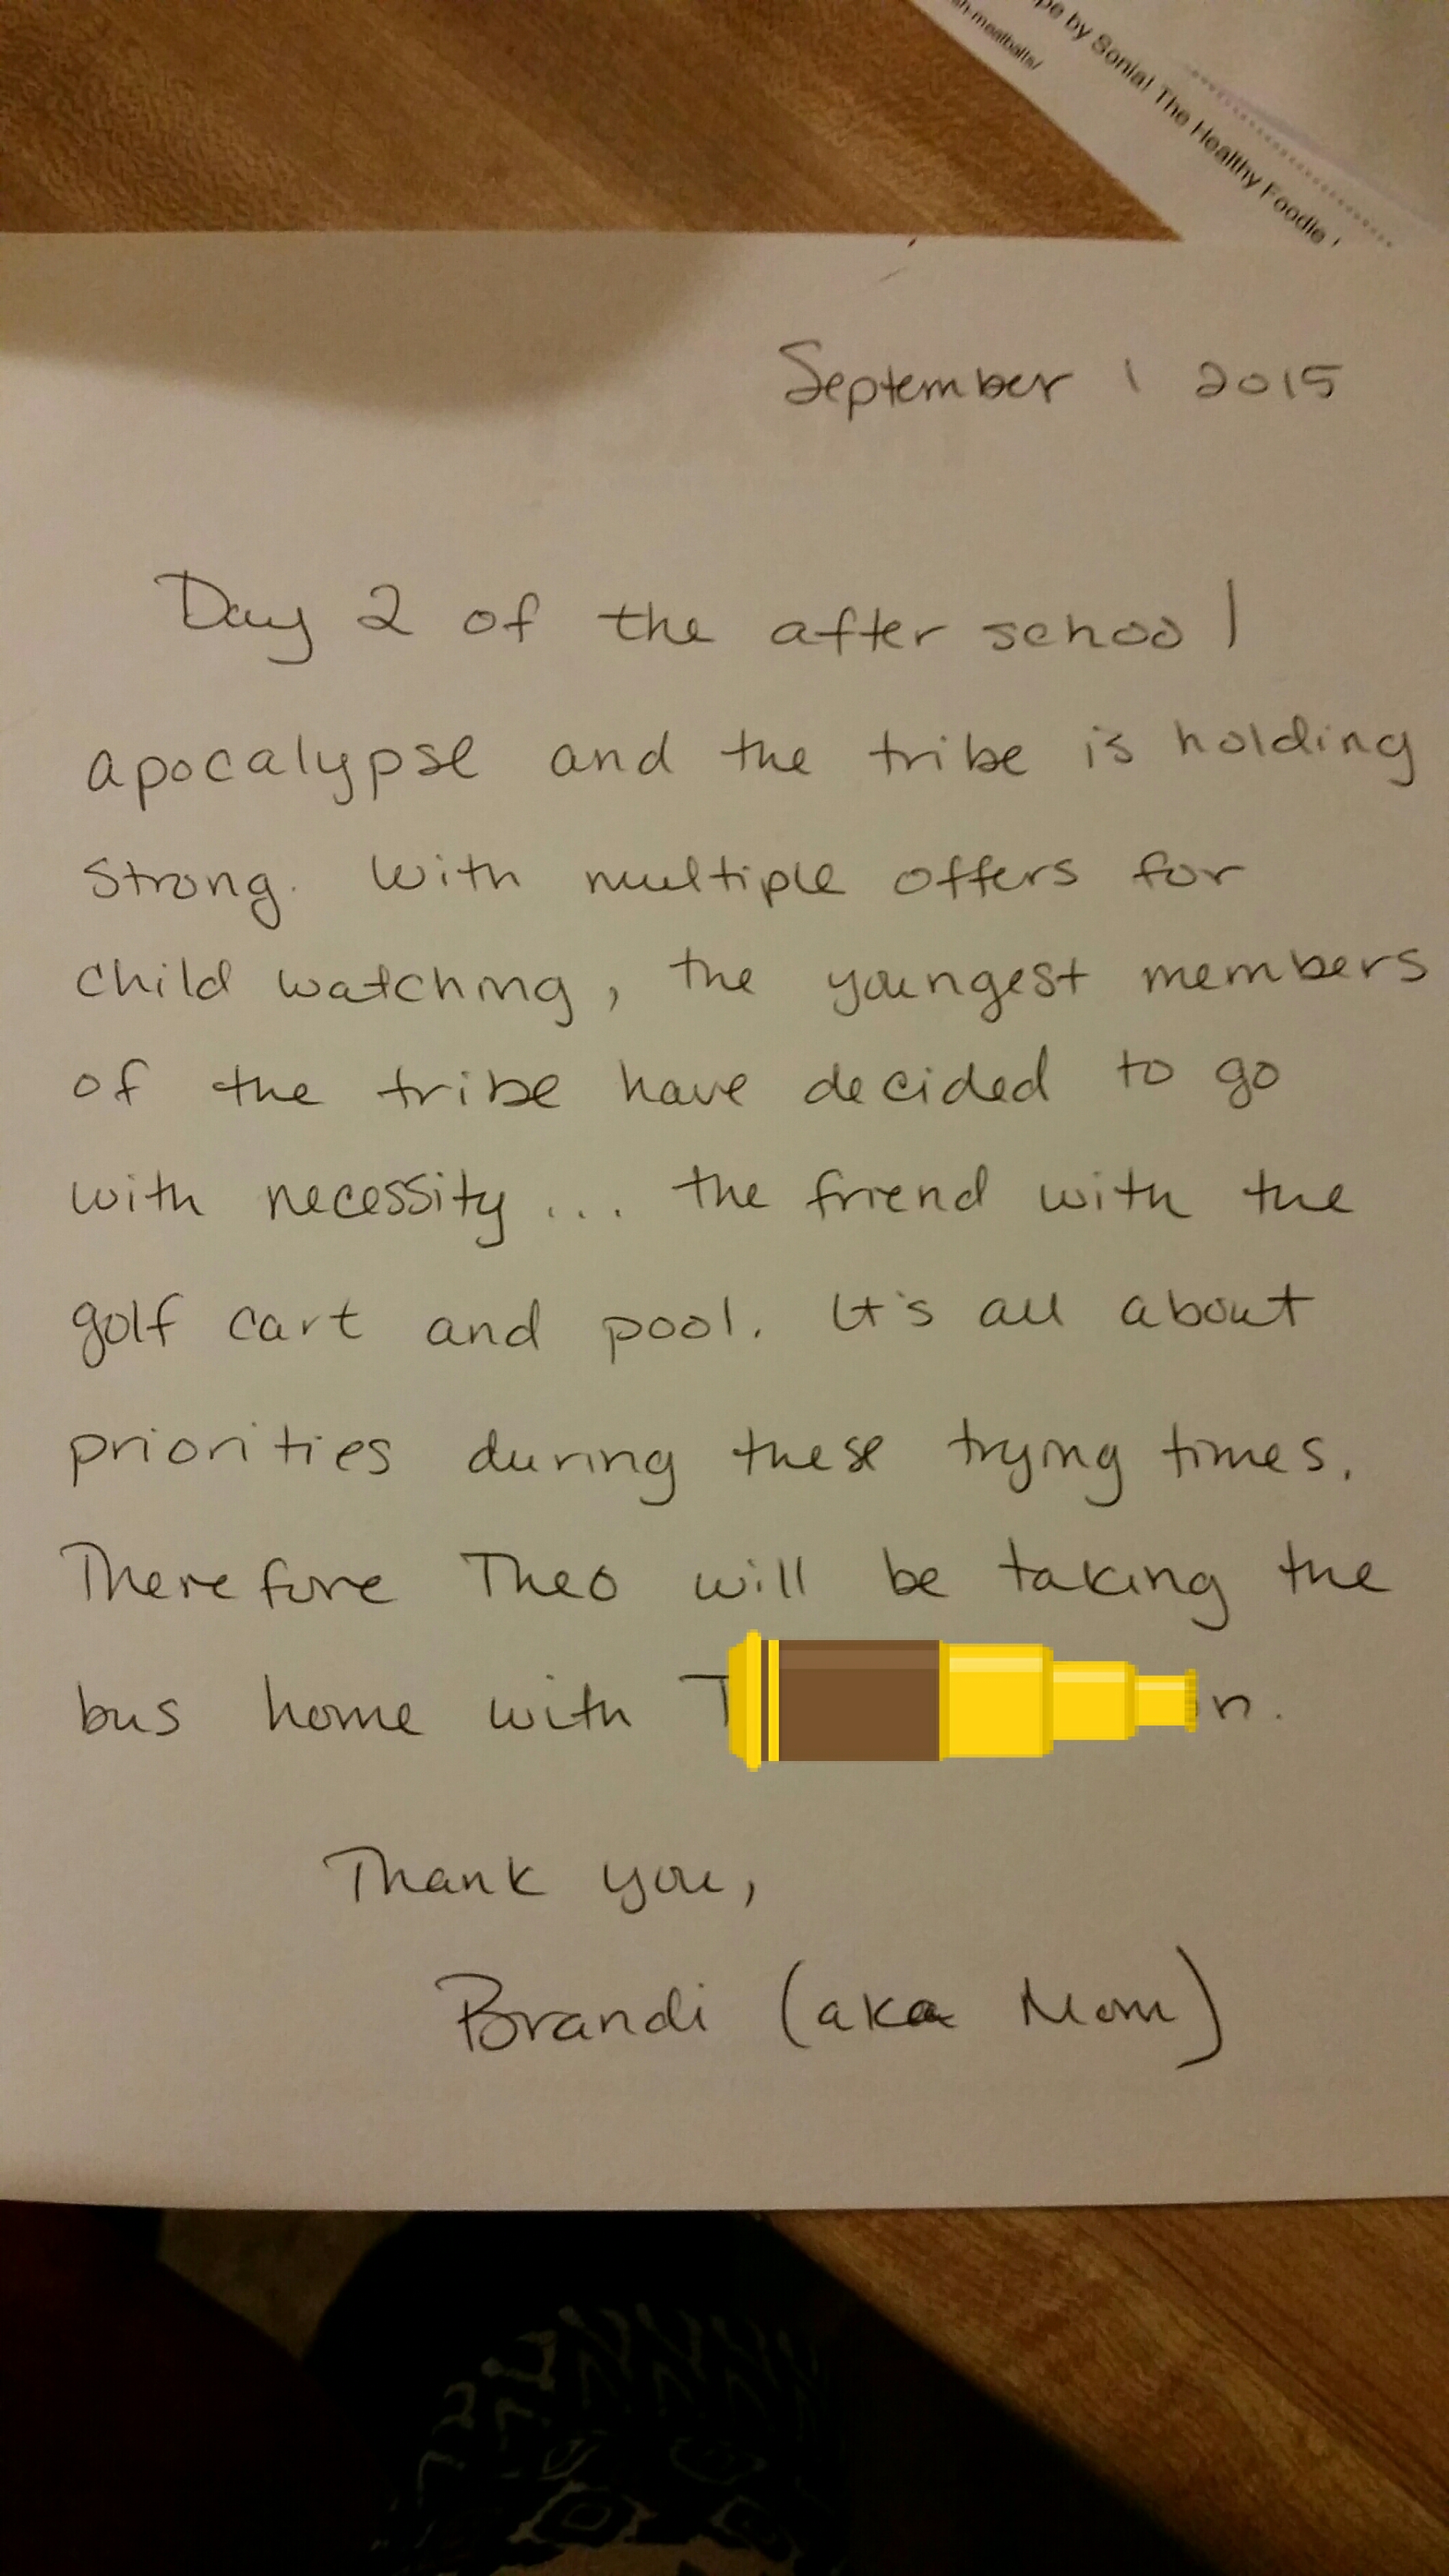 sh-meatballs/
pe by Sonia! The Healthy Foodie!
September 1 2015
Day 2 of the after school
apocalypse and the tribe is holding
strong. With multiple offers for
child watching, the youngest members
of the tribe have decided to go
with necessity... the friend with the
golf cart and pool. It's all about
priorities during these trying times.
Therefore Theo will be taking the
bus home with
Thank you,
Brandi (aka Mom)